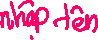 nhập tên